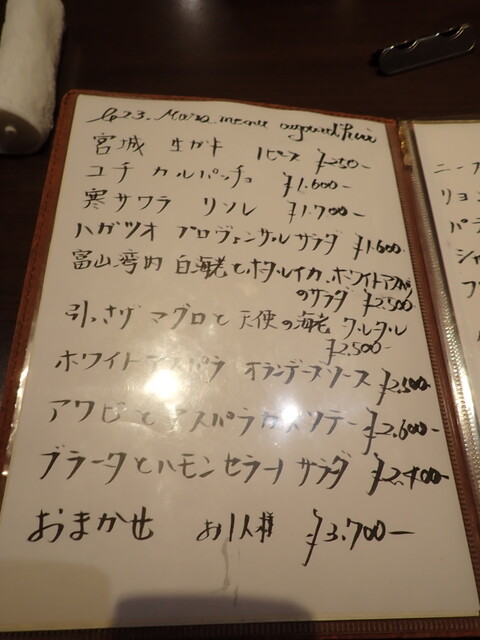 le 23. Mars menu aujourd'hui
宮城 生ガキ 1ピース ¥250-
コチ カルパッチョ ¥1.600-
寒サワラ リソレ ¥1.700-
ハガツオ プロヴァンサル サラダ ¥1.600-
富山湾内 白海老とホタルイカ、ホワイトアスパラ
のサラダ ¥2.500
引っさげマグロと天使の海老 タルタル
¥2.500-
ホワイトアスパラ オランデーズソース ¥2.500-
アワビとアスパラガスソテー ¥2.600-
ブラータとハモンセラーノ サラダ ¥2.400-
おまかせ お1人様 ¥3.700-
ニー
リヨ
パ
シャ